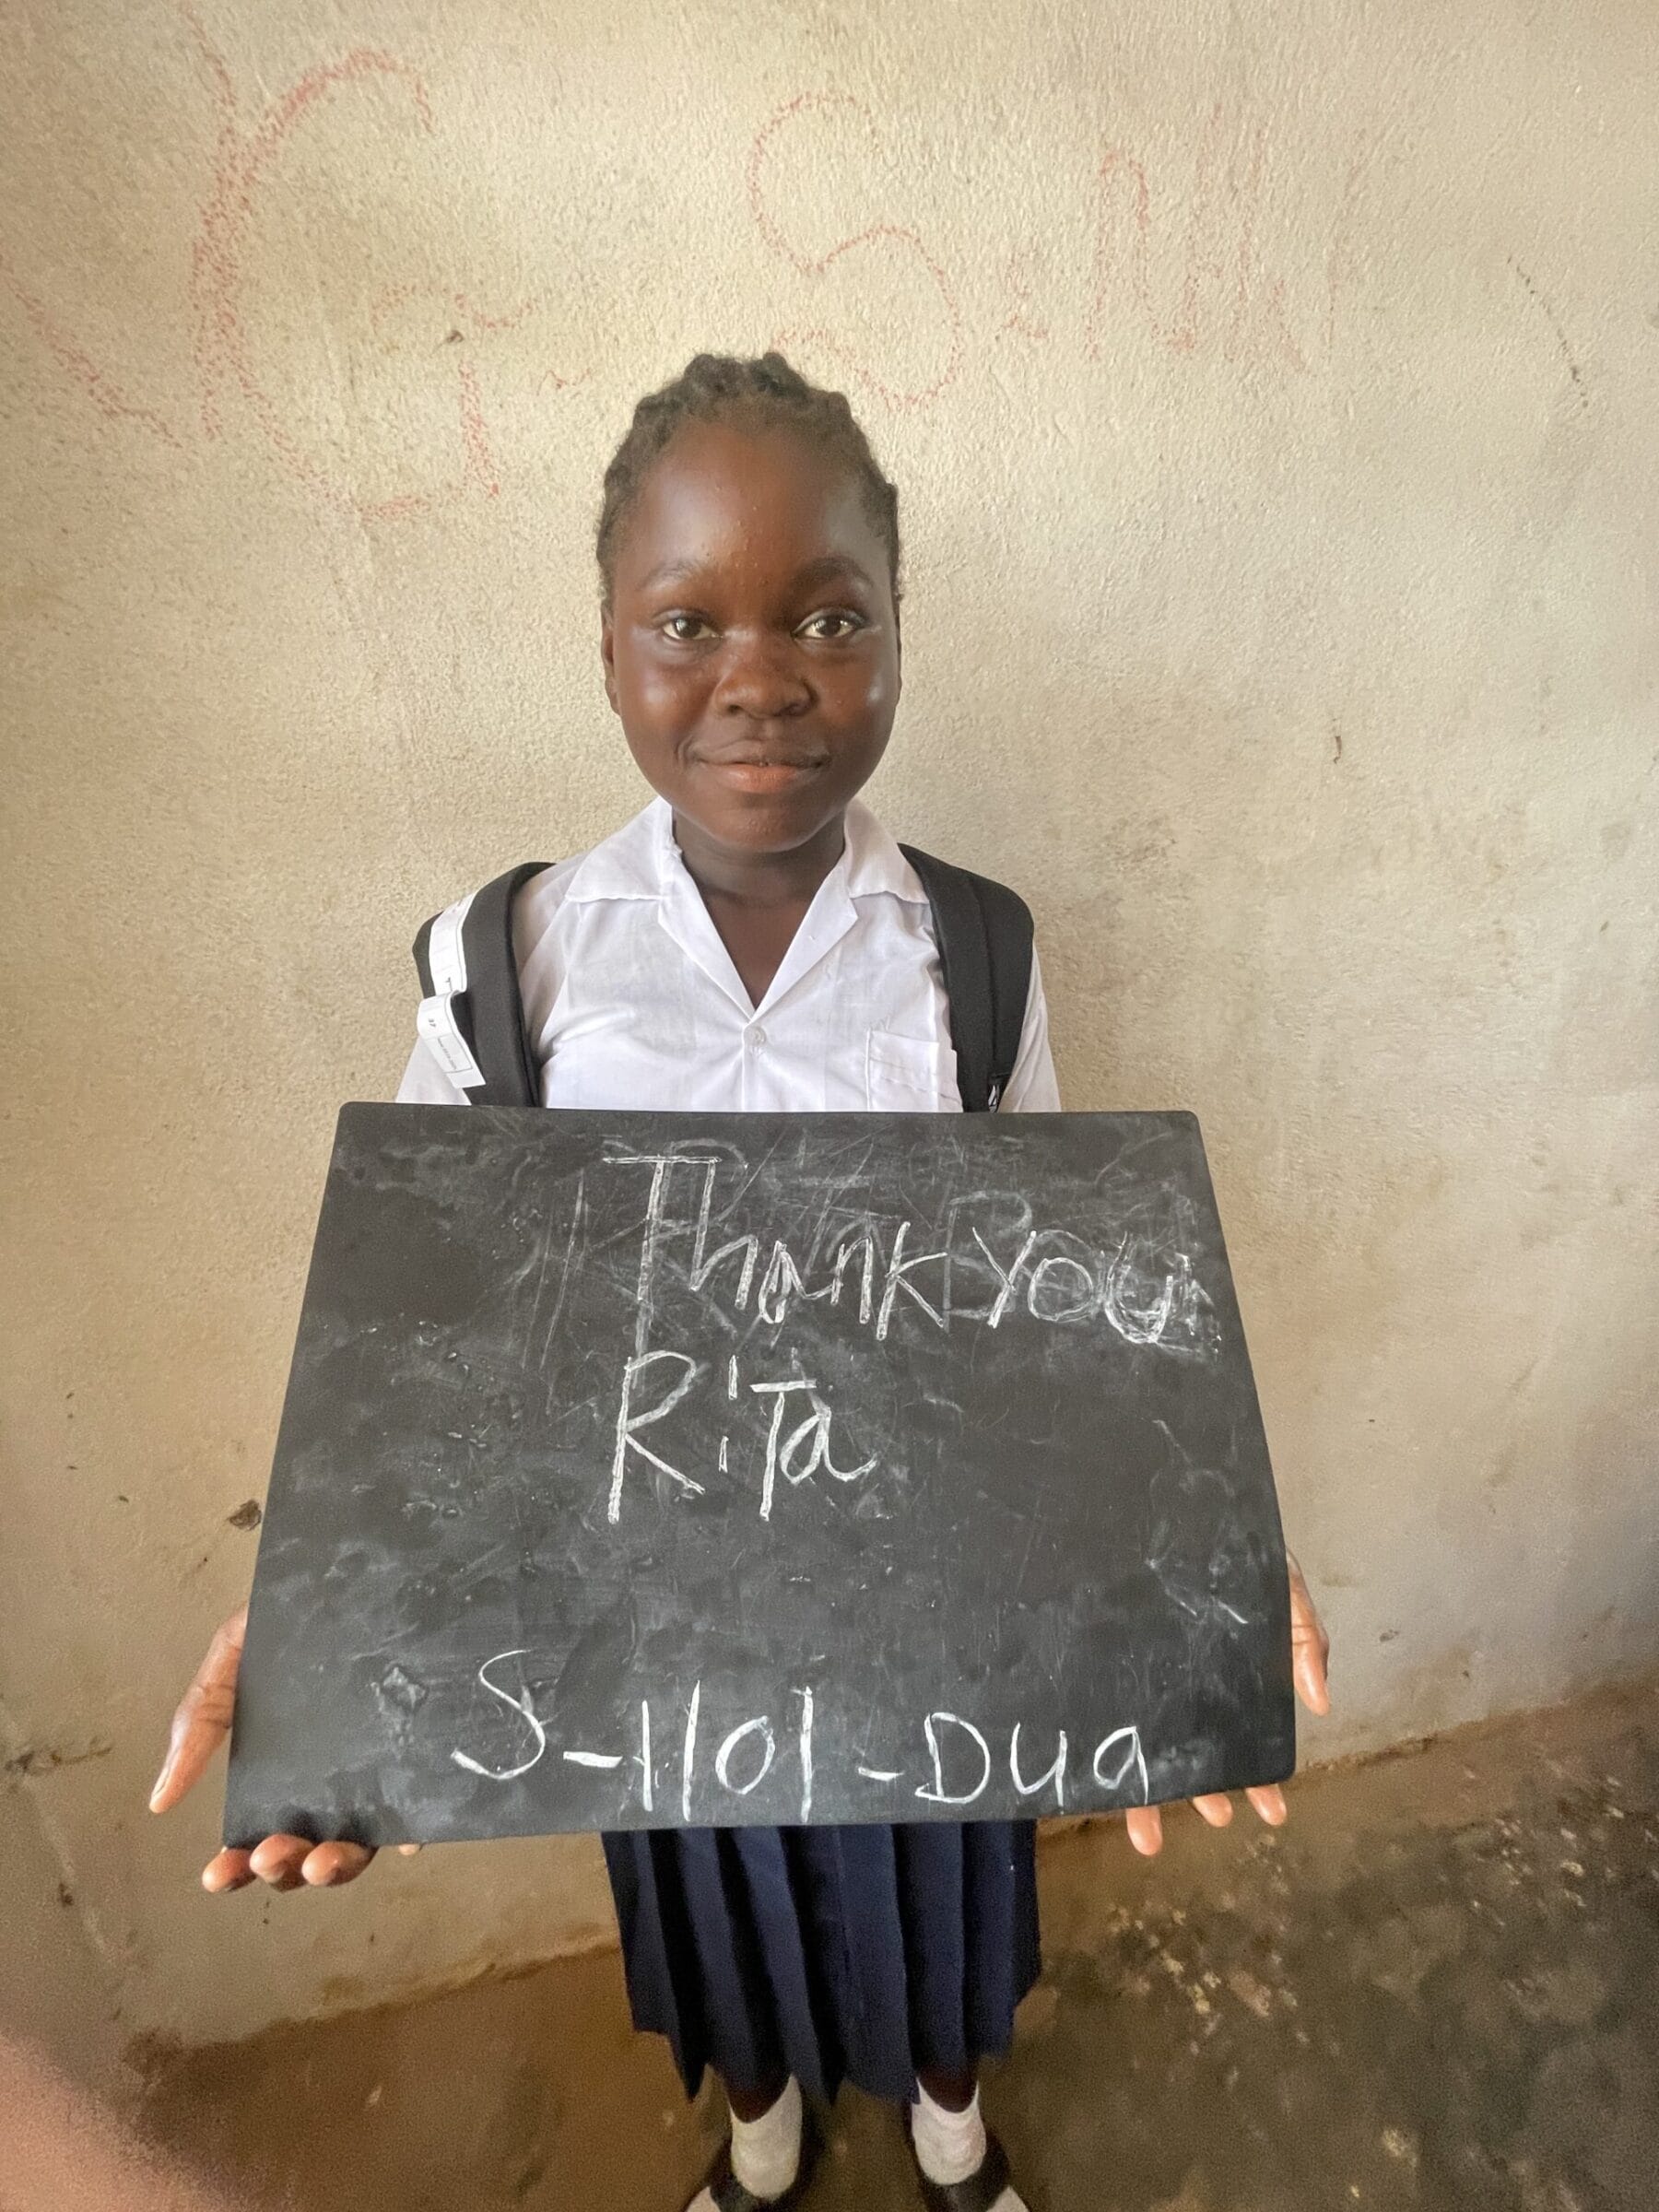 Thank you
Rita
S-1101-Dua